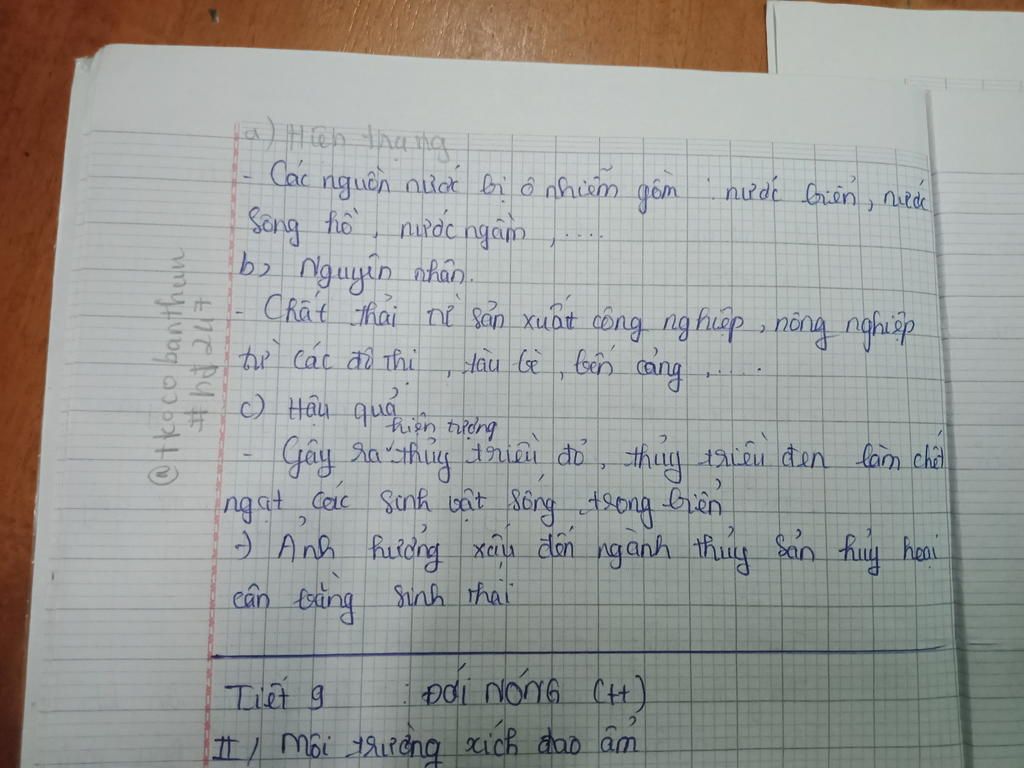 a) Hiện trạng
- Các nguồn nước bị ô nhiễm gồm : nước biển, nước
sông hồ, nước ngầm, ....
b, Nguyên nhân.
- Chất thải từ sản xuất công nghiệp, nông nghiệp
từ các đô thị, tàu bè, bến cảng, ....
c) Hậu quả
hiện tượng
- Gây ra thủy triều đỏ, thủy triều đen làm chết
ngạt các sinh vật sống trong biển
→ Ảnh hưởng xấu đến ngành thủy sản hủy hoại
cân bằng sinh thái
Tiết 9 : ĐỚI NÓNG (tt)
II, Môi trường xích đạo ẩm
@tkoco banthun
#hd 247